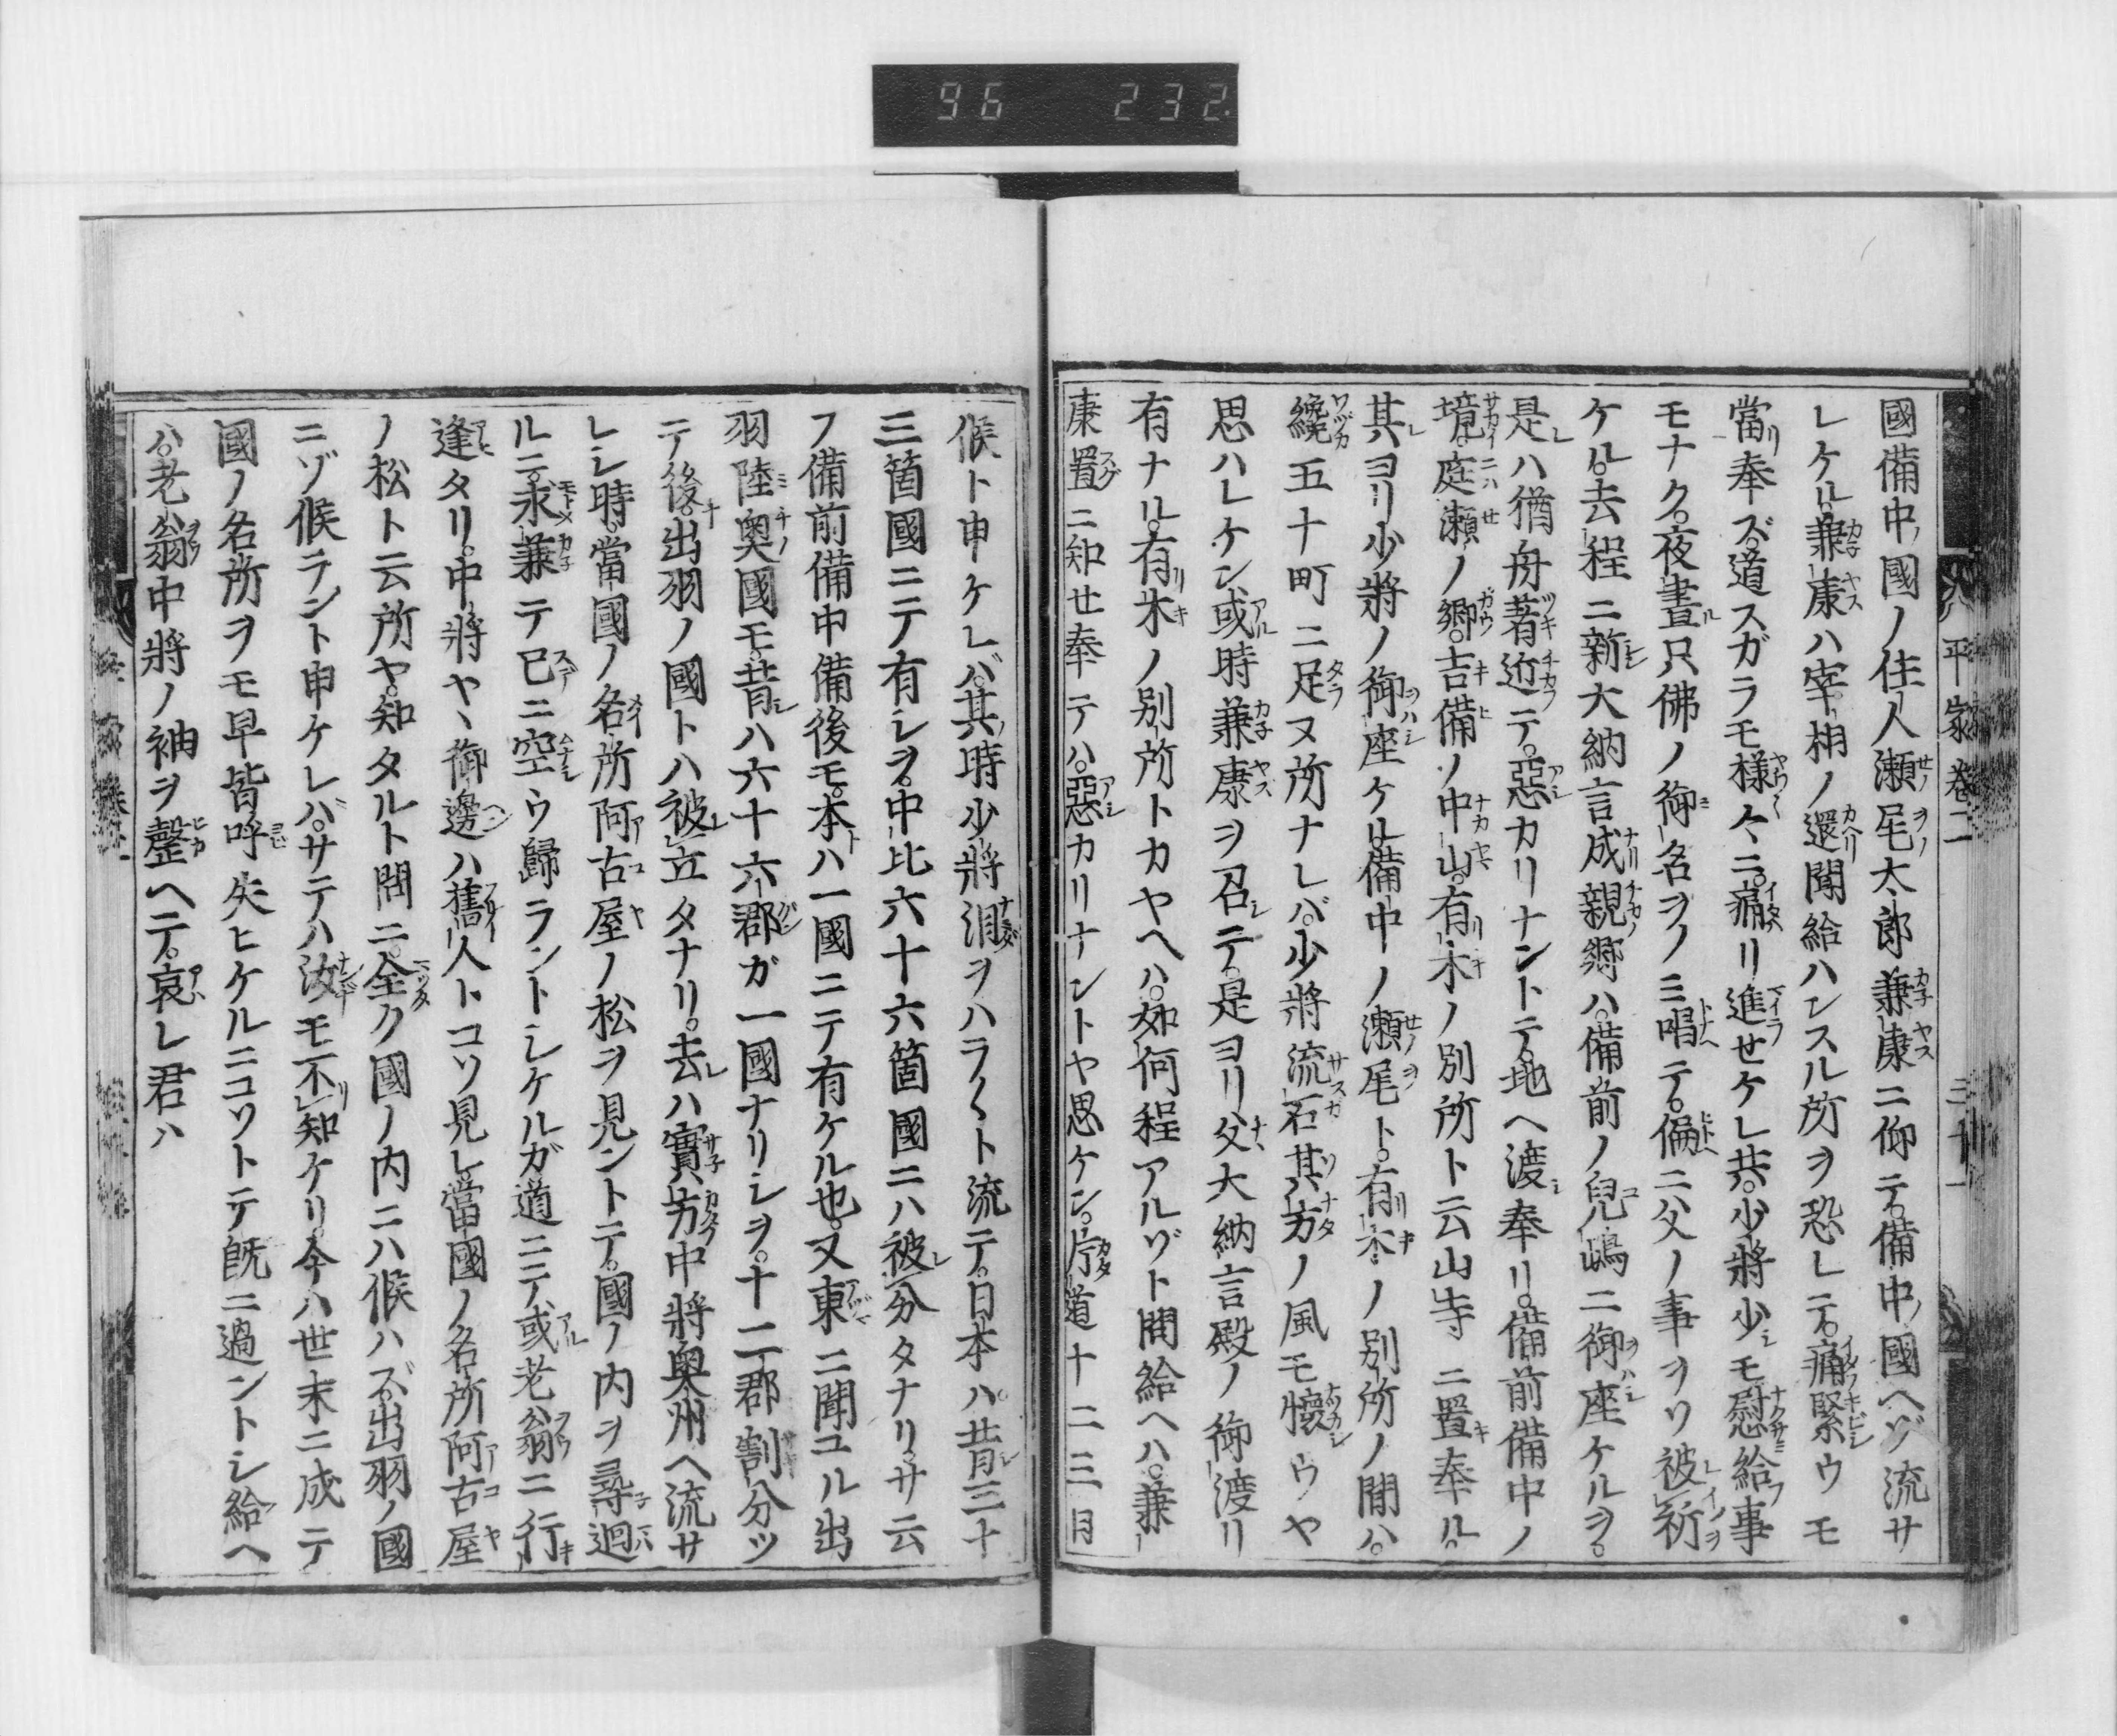 96 232
平家卷二 三十一
國備中ノ國ノ住人瀬尾太郎兼康ニ仰テ。備中ノ國ヘゾ流サ
レケル。兼康ハ宰相ノ還聞給ハンスル所ヲ恐レテ。痛緊ウモ
當リ奉ズ。道スガラモ様々ニ。痛リ進セケレ共。少將少シモ慰給フ事
モナク。夜晝ル只佛ノ御名ヲノミ唱テ。偏ニ父ノ事ヲソ被祈
ケル。去程ニ新大納言成親卿ハ。備前ノ兒嶋ニ御座ケルヲ。
是レハ猶舟著近テ。惡カリナントテ。地ヘ渡奉リ。備前備中ノ
境。庭瀬ノ郷。吉備ノ中山。有木ノ別所ト云山寺ニ置奉ル。
其レヨリ少將ノ御座ケル備中ノ瀬尾ト。有木ノ別所ノ間ハ。
纔五十町ニ足ヌ所ナレバ。少將流石其方ノ風モ懷ウヤ
思ハレケン。或時兼康ヲ召テ。是ヨリ父大納言殿ノ御渡リ
有ナル。有木ノ別所トカヤヘハ。如何程アルゾト問給ヘハ。兼
康置ニ知セ奉テハ。惡カリナントヤ思ケン。片道十二三日
候ト申ケレバ。其時少將泪ヲハラ〱ト流テ。日本ハ。昔シ三十
三箇國ニテ有シヲ。中比六十六箇國ニハ被分タナリ。サ云
フ備前備中備後モ。本ハ一國ニテ有ケル也。又東ニ聞ユル出
羽陸奥國モ。昔シハ六十六郡ガ一國ナリシヲ。十二郡割分ツ
テ後。出羽ノ國トハ被立タナリ。去レハ實方中將奥州ヘ流サ
レシ時。當國ノ名所阿古屋ノ松ヲ見ントテ。國ノ内ヲ尋迴
ルニ。求兼テ已ニ空ウ歸ラントシケルガ道ニテ。或老翁ニ行
逢タリ。中將ヤヽ御邊ハ舊人トコソ見レ。當國ノ名所阿古屋
ノ松ト云所ヤ。知タルト問ニ。全ク國ノ内ニハ候ハズ。出羽ノ國
ニゾ候ラント申ケレバ。サテハ汝モ不知ケリ。今ハ世末ニ成テ
國ノ名所ヲモ早皆呼失ヒケルニコソトテ。既ニ過ントシ給ヘ
ハ。老翁中將ノ袖ヲ磬ヘテ。哀レ君ハ